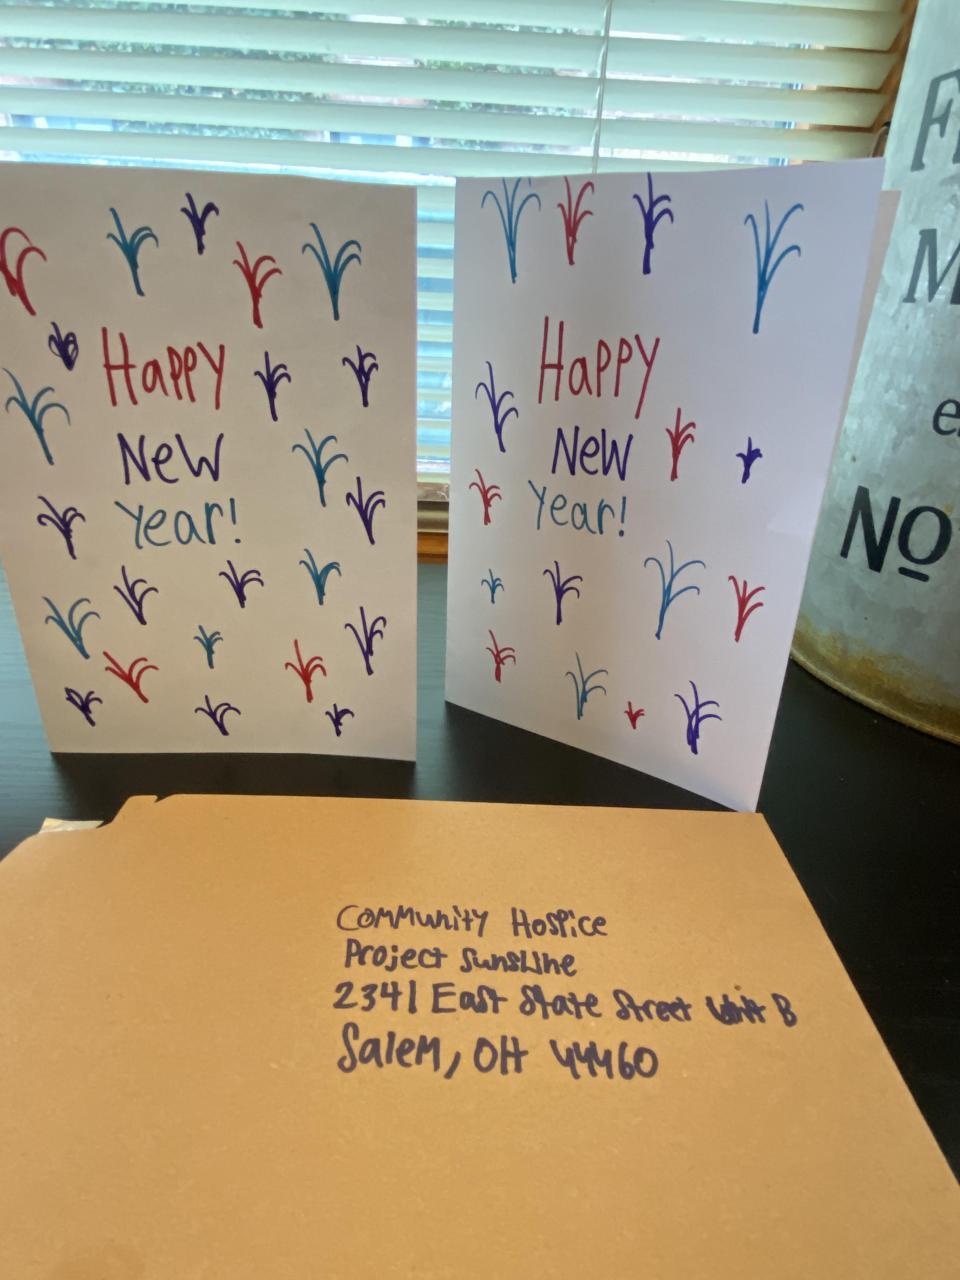 Happy
New
Year!
Happy
New
Year!
NO
Community Hospice
Project Sunshine
2341 East State Street Unit B
Salem, OH 44460